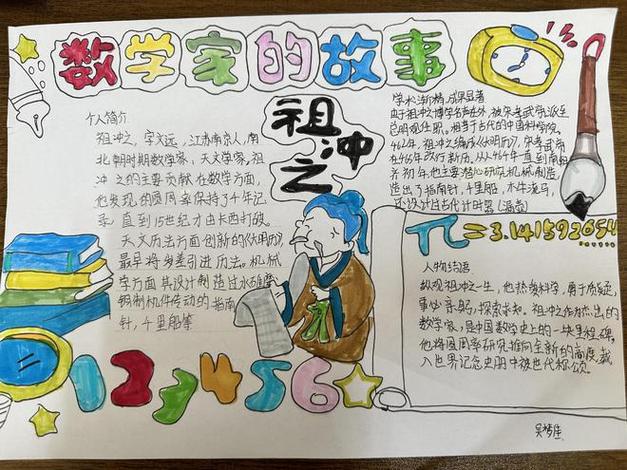 数学家的故事
祖冲之
个人简介
祖冲之，字文远，江苏南京人，南
北朝时期数学家，天文学家，祖
冲之的主要贡献在数学方面，
他发现的圆周率保持了千年记
录，直到15世纪才由卡西打破。
天文历法方面创新的《大明历》
最早将岁差引进历法。机械
学方面其设计制造过水碓磨
铜制机件传动的指南
针，千里船等
学术渐精，成果显著
由于祖冲之博学名声在外，被宋孝武帝派至
昆明观任职。相等于古代的中国科学院。
462年，祖冲之编成《大明历》，宋孝武帝
在465年改行新历。从464年直到南朝
齐初年，他主要潜心研究机械制造，
造出了指南针，千里船，木牛流马，
还设计出古代计时器（漏壶）
π=3.141592654
人物结语
纵观祖冲之一生，他热爱科学，勇于质疑，
事必亲躬，探索求知。祖冲之作为杰出的
数学家，是中国数学史上的一块里程碑。
他将圆周率研究推向全新的高度，载
入世界纪念史册中被世代称颂
123456